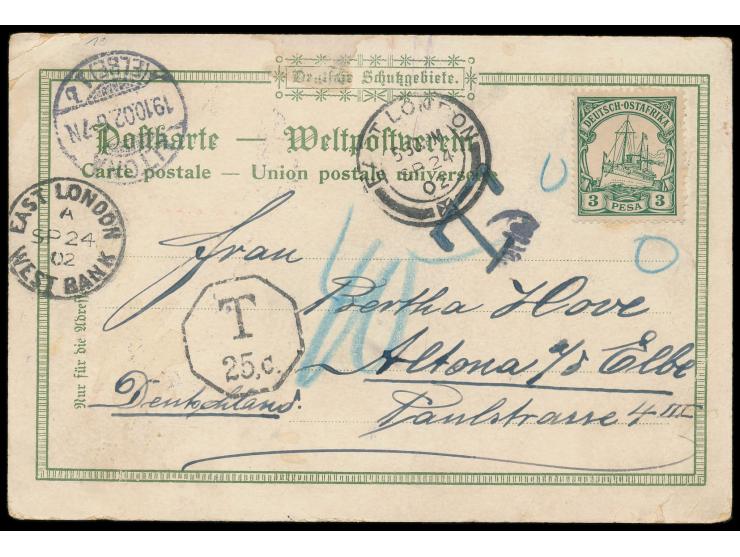 13
Deutsche Schutzgebiete.
ALTONA
(ELBE) 1 b
19.10.02.6-7N
EAST LONDON
5.30 PM
SP 24
02
DEUTSCH-OSTAFRIKA
3 PESA 3
Postkarte — Weltpostverein
Carte postale — Union postale universelle
EAST LONDON
A
SP 24
02
WEST BANK
T
Frau
Bertha Hove
40
T
25.c.
Altona a/d Elbe
Deutschland.
Paulstrasse 4 III
Nur für die Adresse